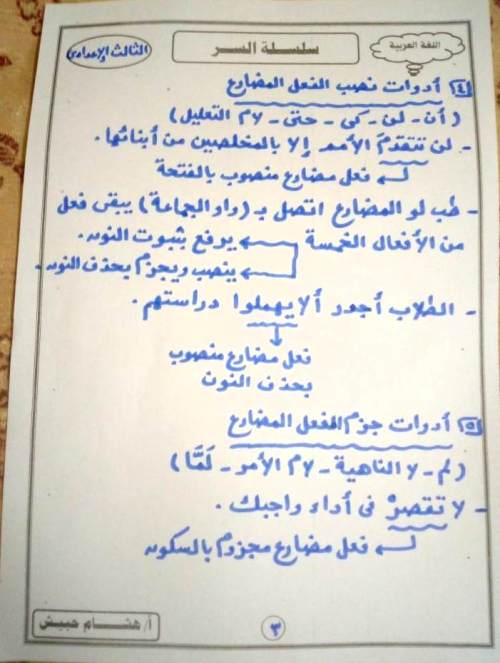 اللغة العربية
سلسلة السر
الثالث الإعدادى
٤ أدوات نصب الفعل المضارع
(أن - لن - كى - حتى - لام التعليل)
- لن تتقدمَ الأمم إلا بالمخلصين من أبنائها.
فعل مضارع منصوب بالفتحة
- طب لو المضارع اتصل بـ (واو الجماعة) يبقى فعل
من الأفعال الخمسة
يرفع بثبوت النون.
ينصب ويجزم بحذف النون.
- الطلاب أجدر ألا يهملوا دراستهم.
فعل مضارع منصوب
بحذف النون
٥ أدوات جزم الفعل المضارع
(لم - لا الناهية - لام الأمر - لَمَّا)
- لا تقصرْ فى أداء واجبك.
فعل مضارع مجزوم بالسكون
٣
أ/ هشام حبيش